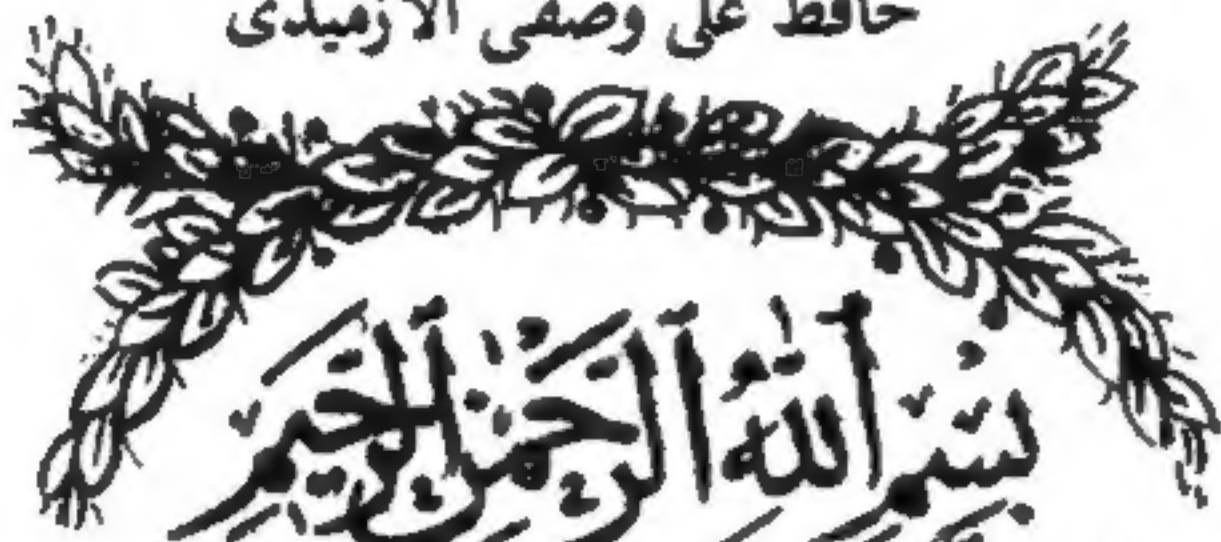 حافظ على وصفى الازميدى
بسم الله الرحمن الرحيم